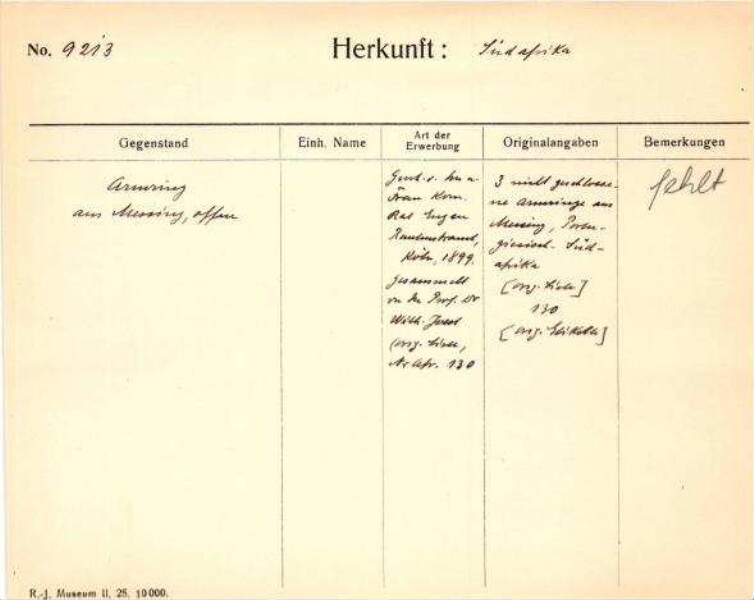 No. 9213 Herkunft: Südafrika
Gegenstand
Einh. Name
Art der
Erwerbung
Originalangaben
Bemerkungen
Armring
aus Messing, offen
Gesch. v. Hn u.
Frau Kom.
Rat Eugen
Rautenstrauch,
Köln, 1899.
gesammelt
von Prof. Dr
Wilh. Joest
(orig. Liste,
Nr Afr. 130
3 nicht geschlosse-
ne Armringe aus
Messing, Portu-
giesisch-Süd-
afrika
[orig. Liste]
130
[orig. Etikett]
fehlt
R.-J. Museum II, 25. 10000.